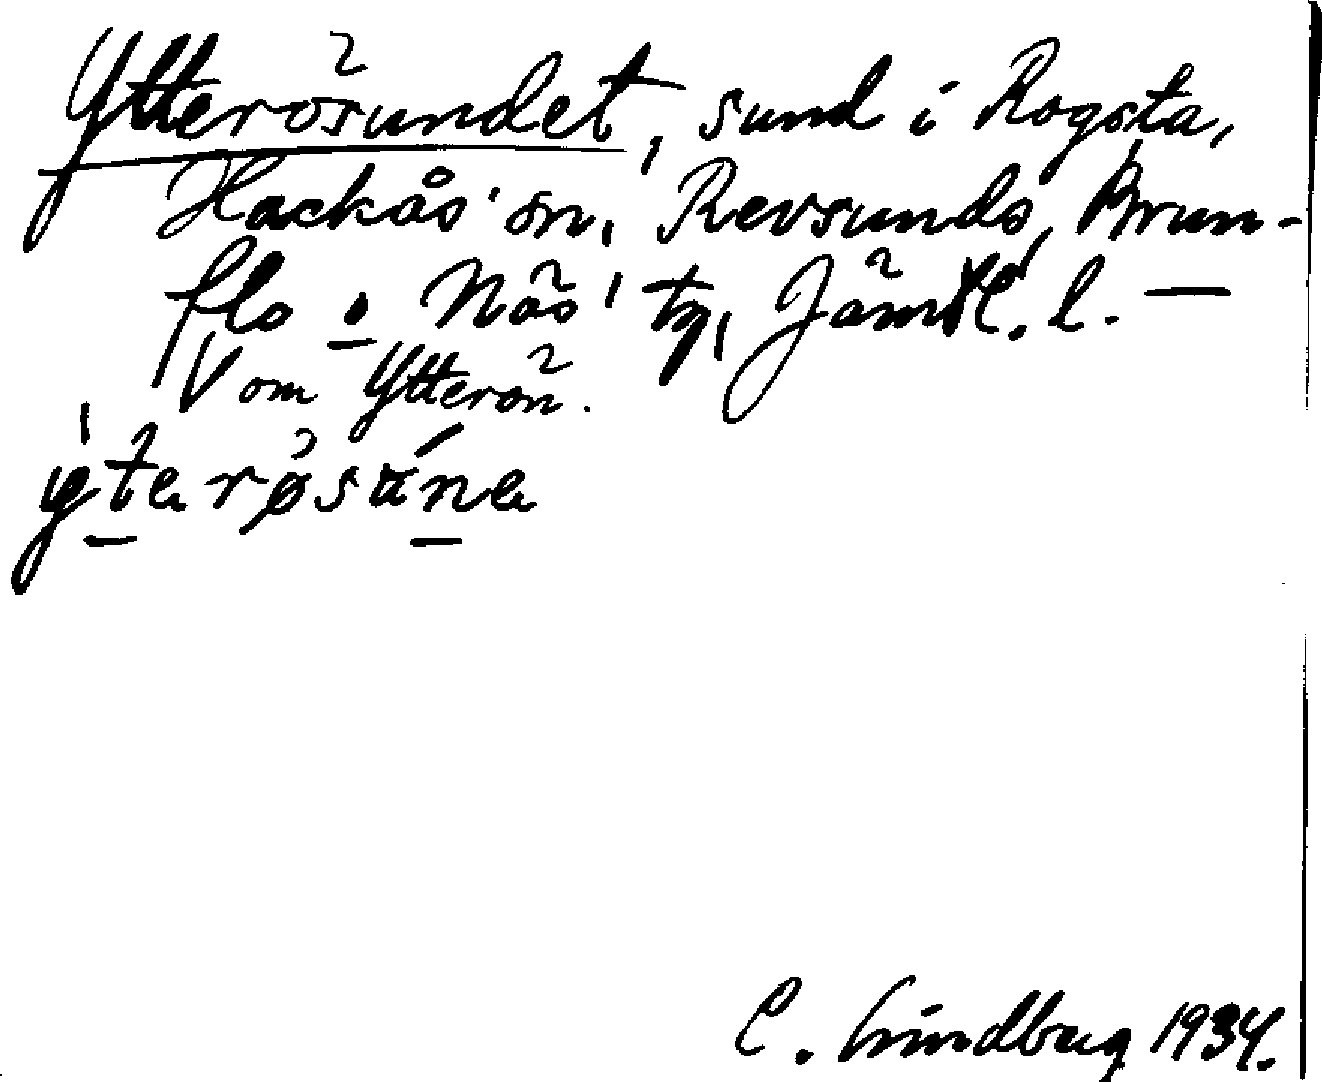 Ytterösundet, sund i Rogsta,
Hackås' sn, Revsunds, Brun-
flo o Näs' tg, Jämtl. l. —
V om Ytterön.
ýterøsúne
C. Lindberg 1934.